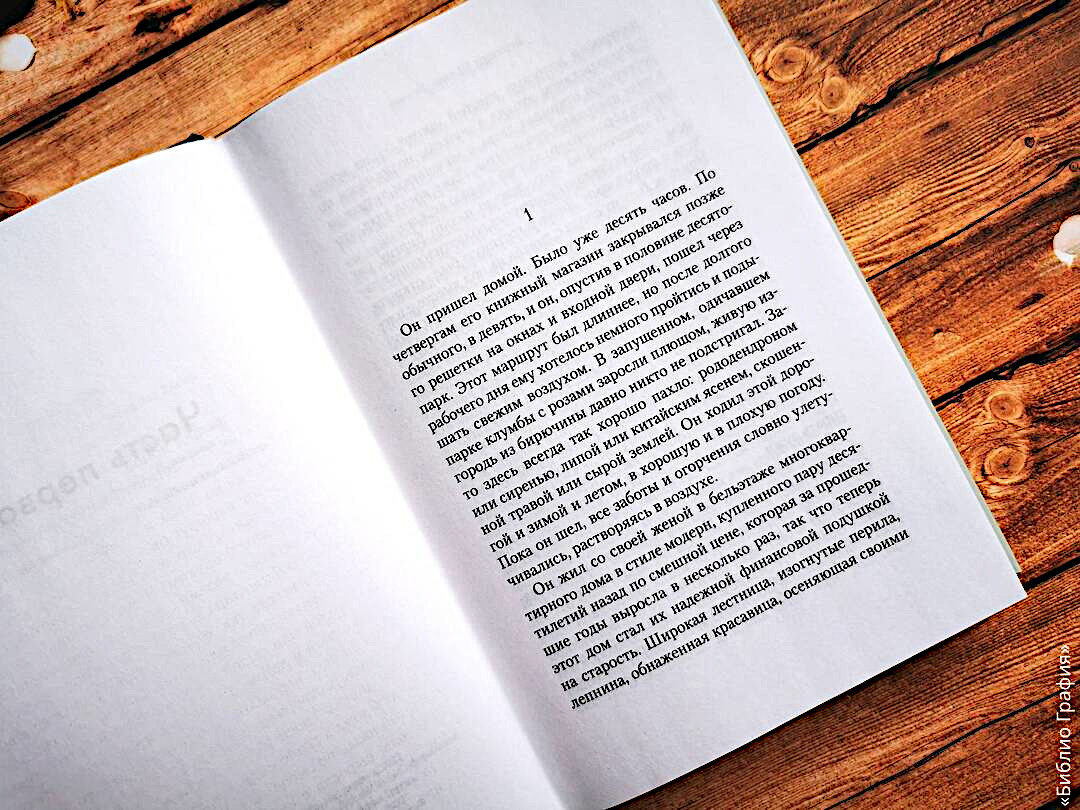 1
Он пришел домой. Было уже десять часов. По
четвергам его книжный магазин закрывался позже
обычного, в девять, и он, опустив в половине десято-
го решетки на окнах и входной двери, пошел через
парк. Этот маршрут был длиннее, но после долгого
рабочего дня ему хотелось немного пройтись и поды-
шать свежим воздухом. В запущенном, одичавшем
парке клумбы с розами заросли плющом, живую из-
городь из бирючины давно никто не подстригал. За-
то здесь всегда так хорошо пахло: рододендроном
или сиренью, липой или китайским ясенем, скошен-
ной травой или сырой землей. Он ходил этой доро-
гой и зимой и летом, в хорошую и в плохую погоду.
Пока он шел, все заботы и огорчения словно улету-
чивались, растворяясь в воздухе.
Он жил со своей женой в бельэтаже многоквар-
тирного дома в стиле модерн, купленного пару деся-
тилетий назад по смешной цене, которая за прошед-
шие годы выросла в несколько раз, так что теперь
этот дом стал их надежной финансовой подушкой
на старость. Широкая лестница, изогнутые перила,
лепнина, обнаженная красавица, осеняющая своими
«Библио Графия»